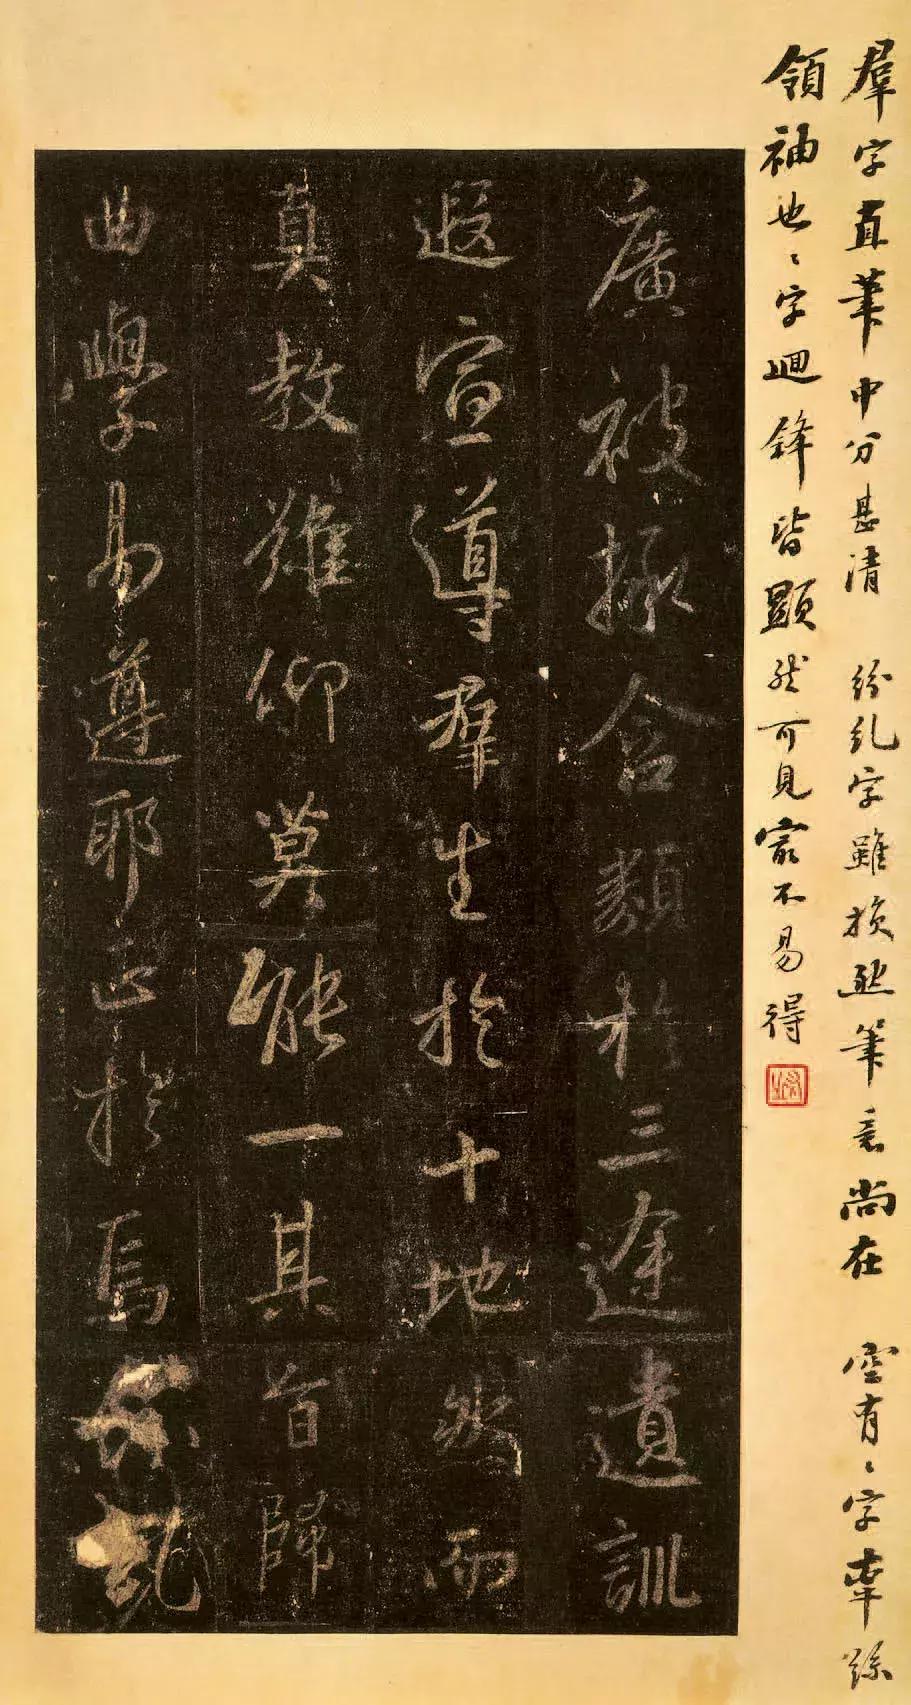 羣字直筆中分甚清 紛糺字雖損然筆意尚在 空有二字牽絲
領袖也二字迴鋒皆顯然可見㝡不易得
廣被拯含類於三途遺訓
遐宣導羣生於十地然而
真教難仰莫能一其旨歸
曲學易遵耶正於焉紛糺